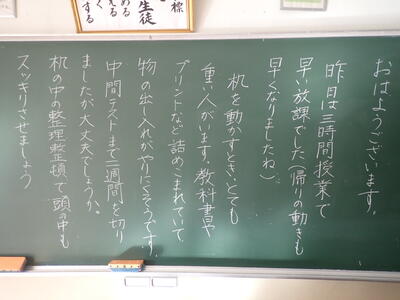 標
める
える
く
する
生徒
おはようございます。
昨日は三時間授業で
早い放課でした(帰りの動きも
早くなりましたね)
机を動かすとき、とても
重い人がいます。教科書や
プリントなど詰めこまれていて、
物の出し入れがやりにくそうです。
中間テストまで二週間を切り
ましたが大丈夫でしょうか。
机の中の整理整頓で、頭の中も
スッキリさせましょう